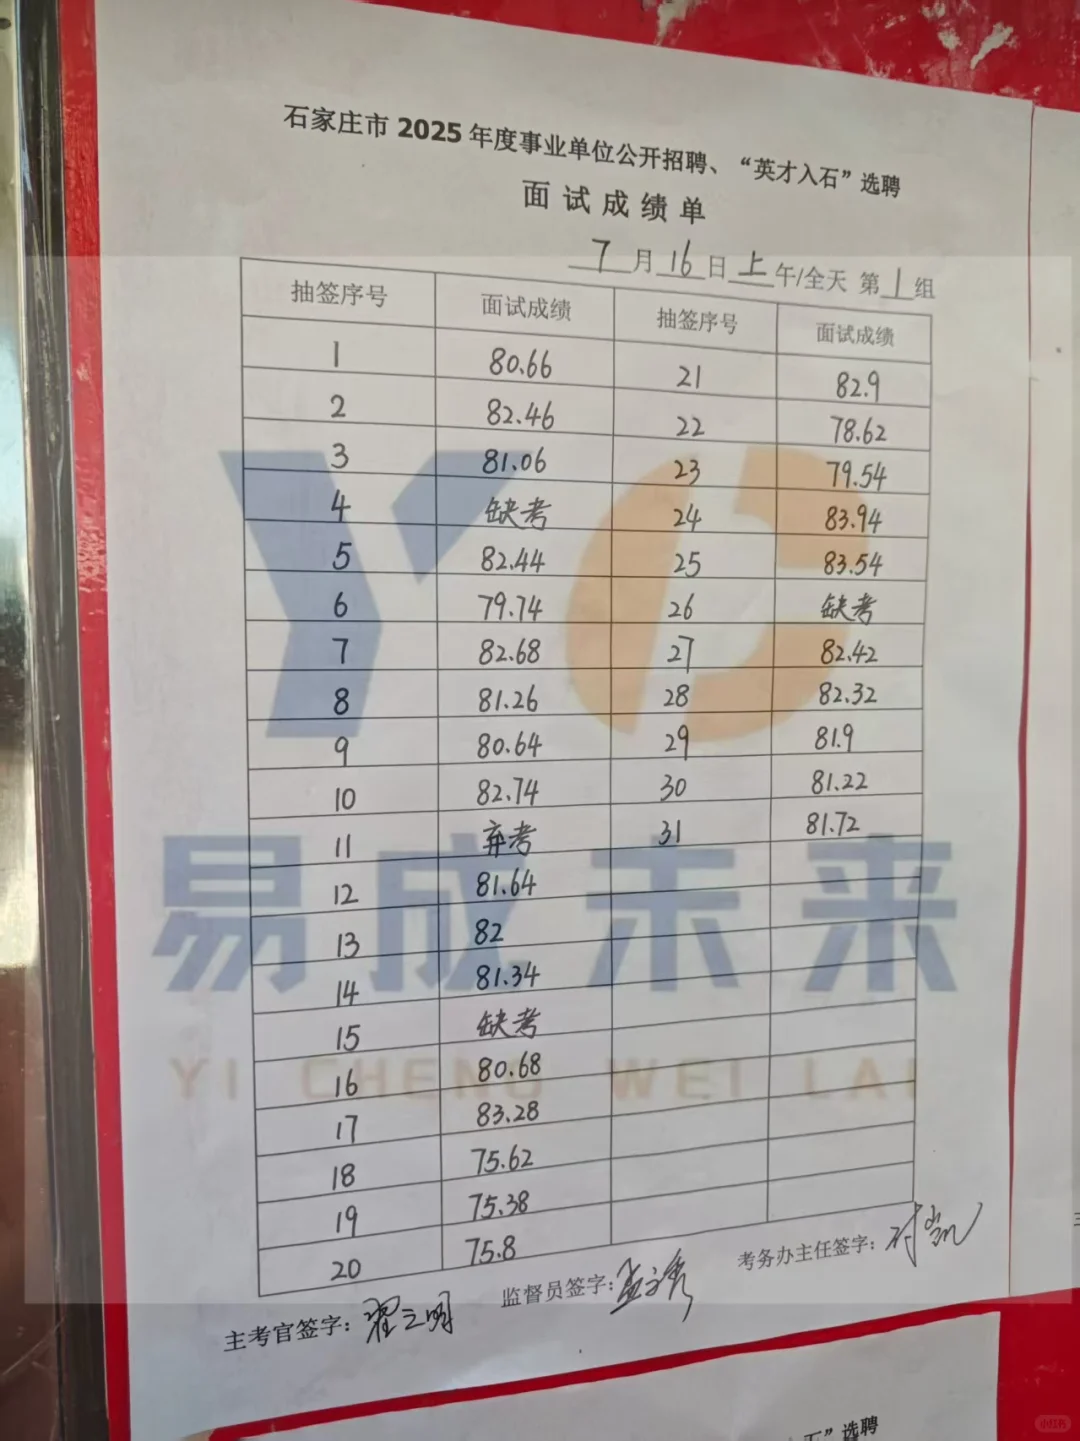 石家庄市 2025 年度事业单位公开招聘、“英才入石”选聘
面试成绩单
7月16日上午/全天 第1组
抽签序号 面试成绩 抽签序号 面试成绩
1 80.66 21 82.9
2 82.46 22 78.62
3 81.06 23 79.54
4 缺考 24 83.94
5 82.44 25 83.54
6 79.74 26 缺考
7 82.68 27 82.42
8 81.26 28 82.32
9 80.64 29 81.9
10 82.74 30 81.22
11 弃考 31 81.72
12 81.64
13 82
14 81.34
15 缺考
16 80.68
17 83.28
18 75.62
19 75.38
20 75.8
主考官签字: 监督员签字: 考务办主任签字:
易成未来
YI CHENG WEI LAI
”选聘